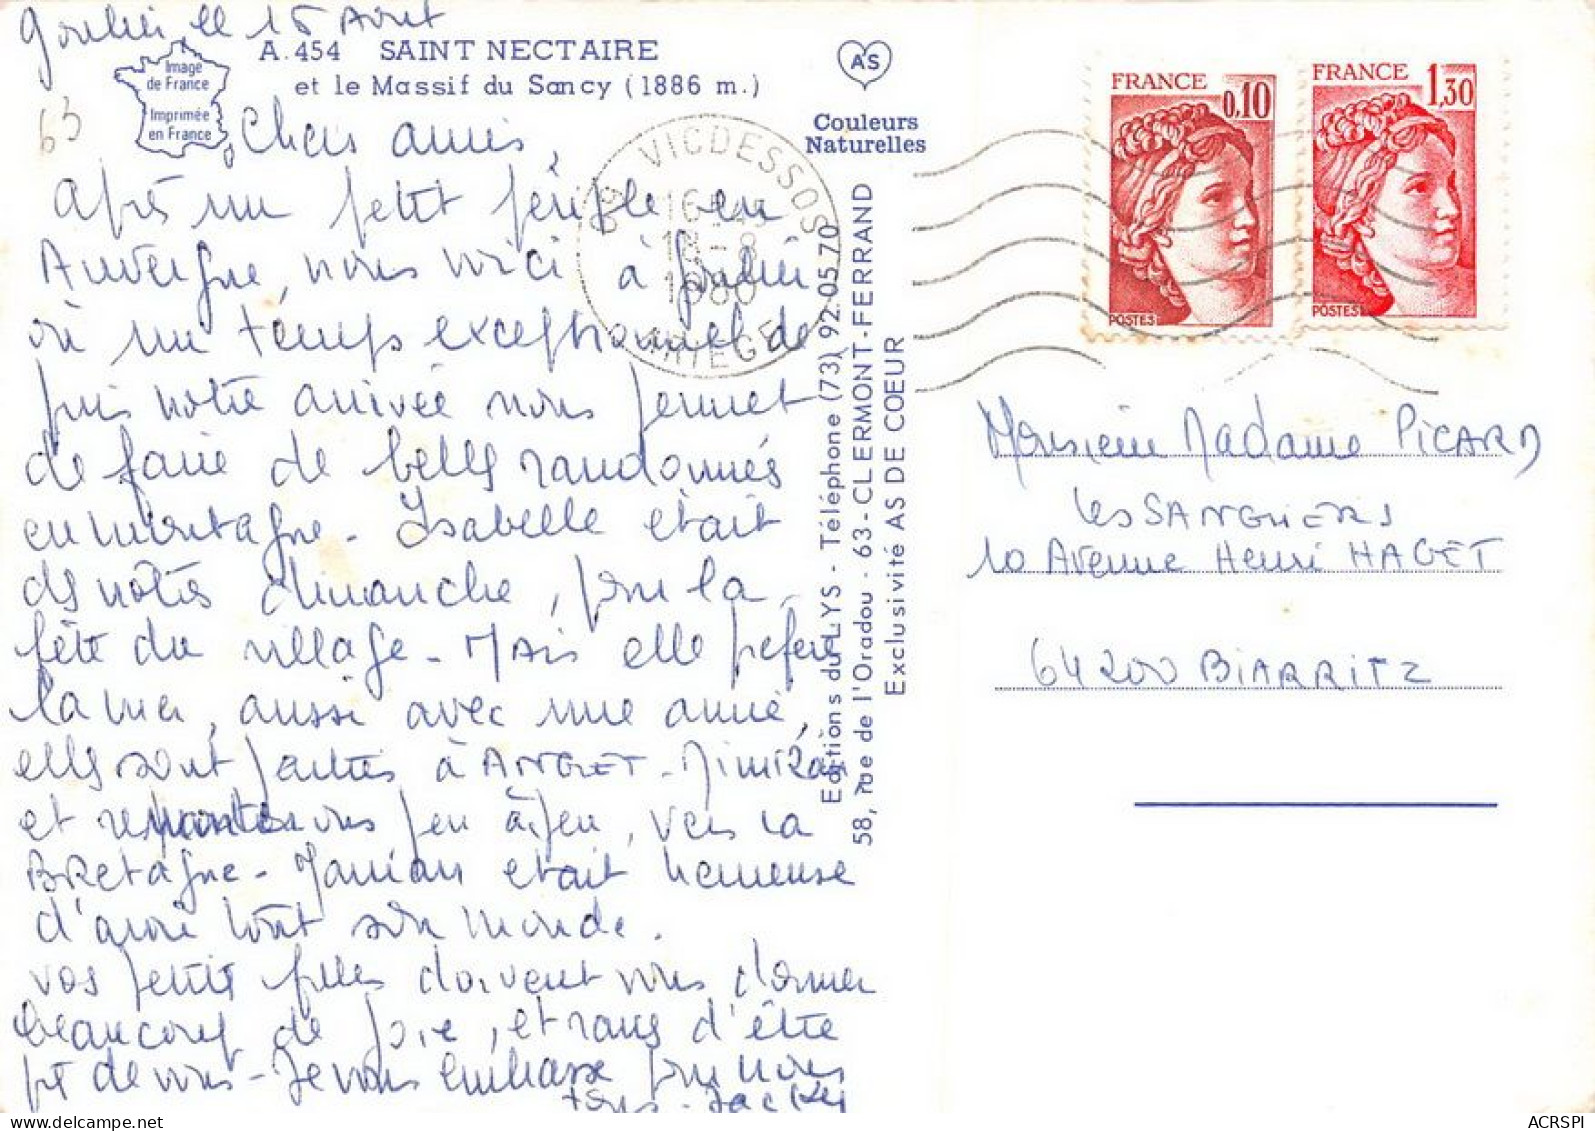 Goulier, le 15 Août
A.454 SAINT NECTAIRE
et le Massif du Sancy (1886 m.)
Image
de France
Imprimée
en France
63
AS
Couleurs
Naturelles
Chers amis,
après un petit périple en
Auvergne, nous voici à Goulier
où un temps exceptionnel de
puis notre arrivée nous permet
de faire de belles randonnées
en montagne - Isabelle était
ds notres dimanche, pour la
fête du village - Mais elle préfère
la mer, aussi avec une amie,
elles sont parties à ANGLET - Mimizan
et peu à peu, vers la
BRetagne - Maman etait heureuse
d'avoir tout son monde.
vos petites filles doivent vous donner
beaucoup de joie, et sans d'être
pt de vous - Je vous embrasse pour nous
tous - Jackie
Editions du LYS - Téléphone (73) 92.05.70
58, rue de l'Oradou - 63-CLERMONT-FERRAND
Exclusivité AS DE CŒUR
09 VICDESSOS
16H45
18-8
1980
ARIEGE
FRANCE
0,10
POSTES
FRANCE
1,30
POSTES
Monsieur Madame PICARD
Les SANGLIERS
10 Avenue Henri HAGET
64200 BIARRITZ
ACRSPI